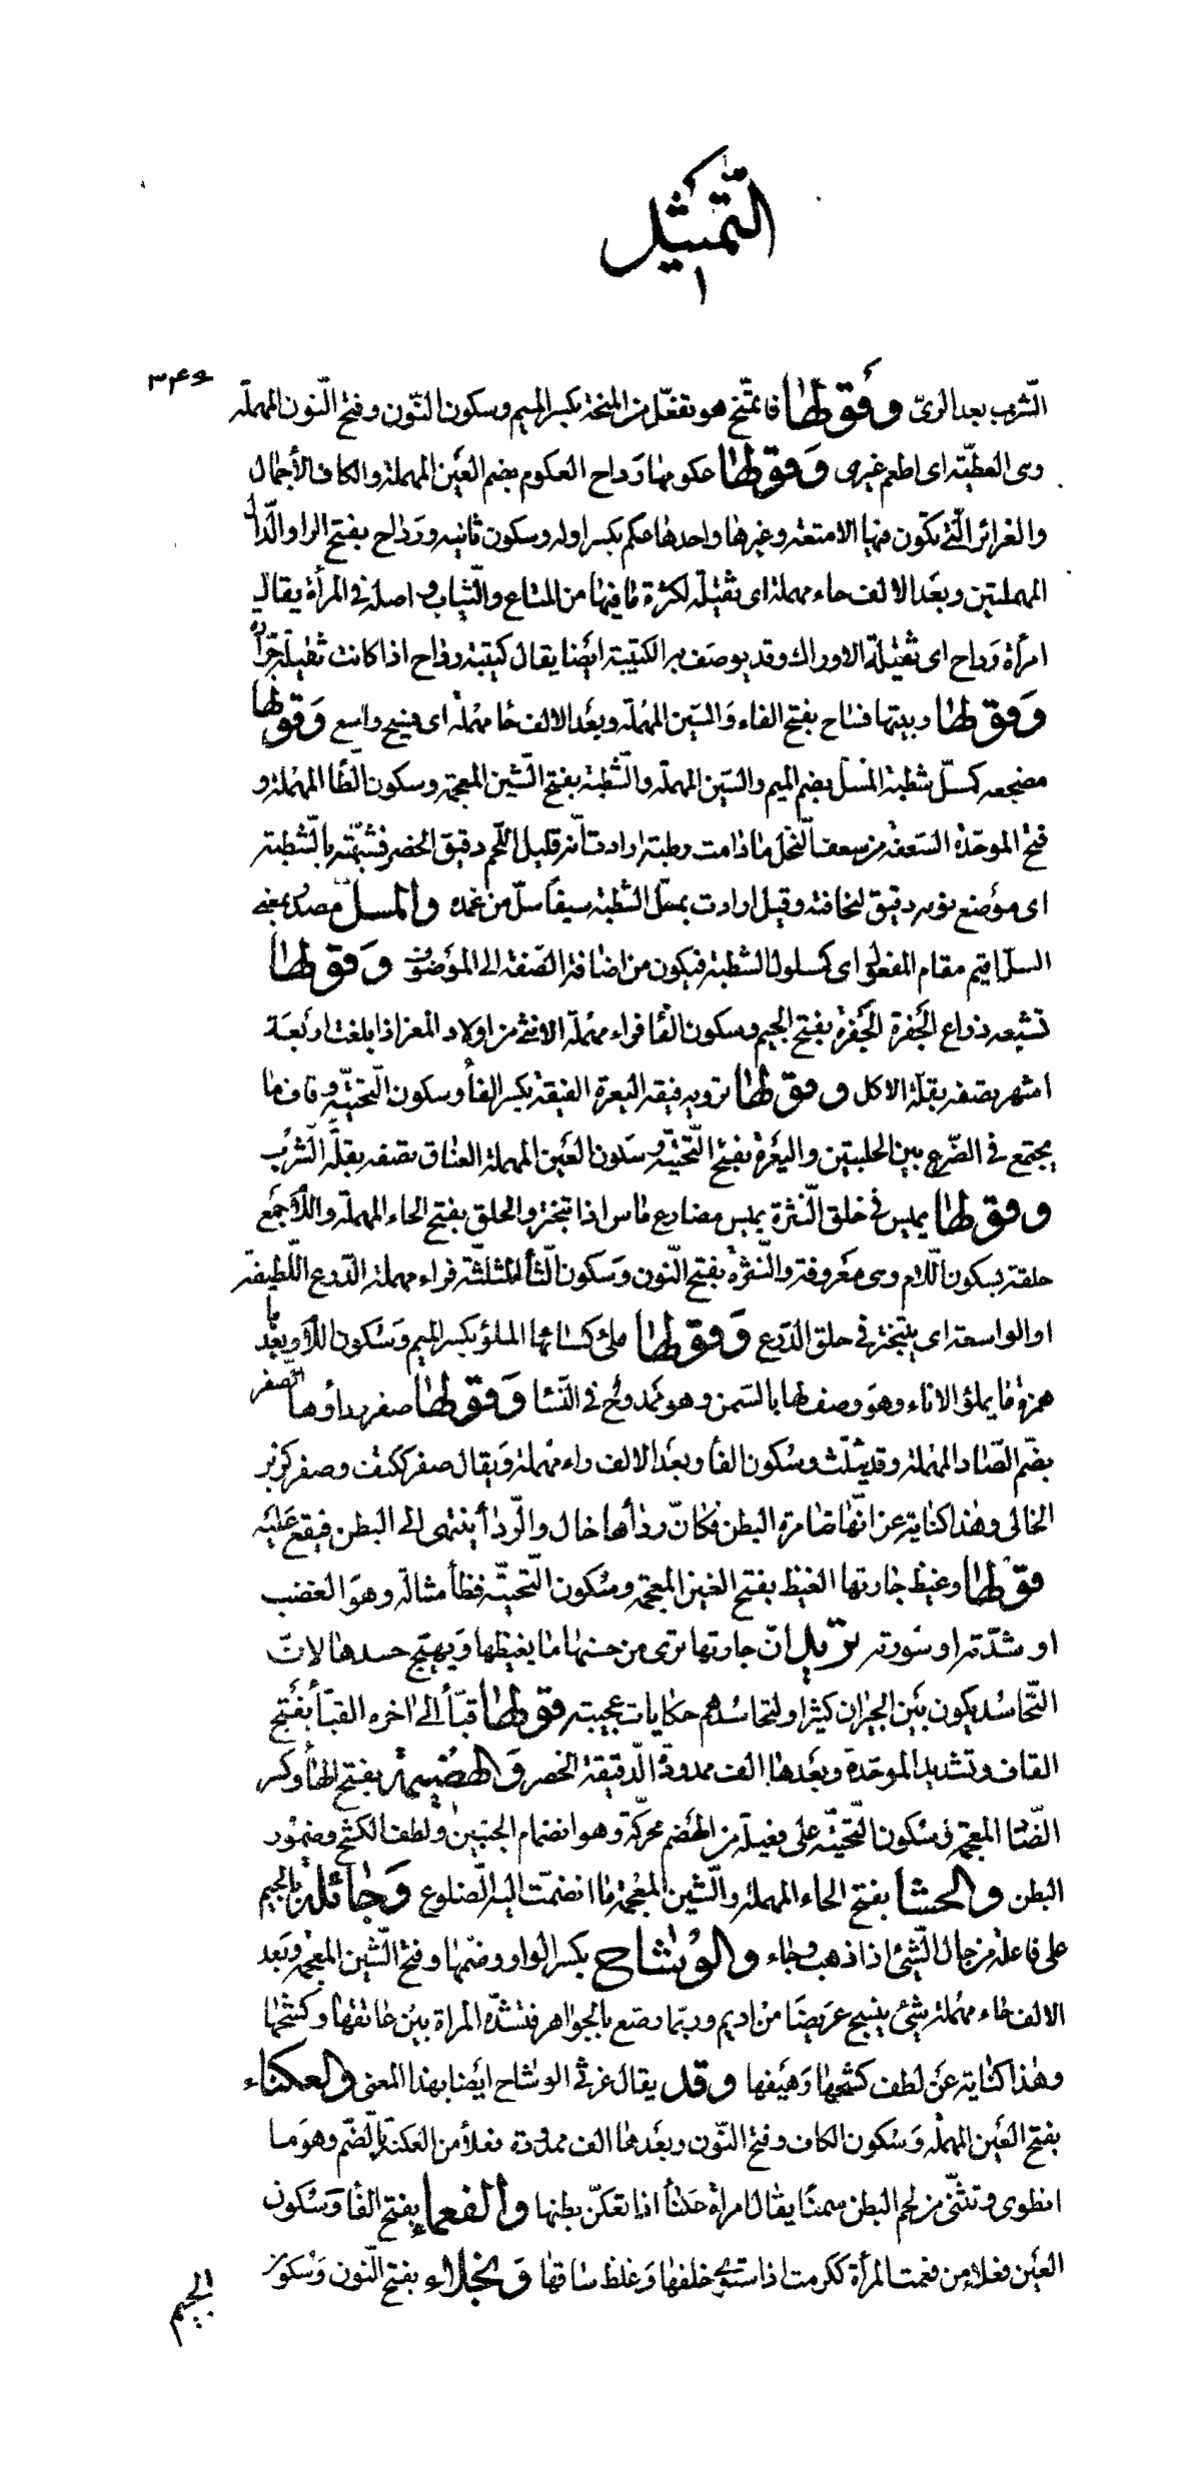 التمثيل
١
٣۴۶
الشرب بعد الرىّ وَقولها فاتمنّح هو تفعّل من المنحة بكسر الميم وسكون النّون وفتح النّون المهملة
وهى العطيّة اى اطعم غيرى وَقولها عكومها رَداح العكوم بضم العَين المهملة والكاف الأجمال
والغرائر الّتى تكون فيها الامتعة وغيرها واحدها عكم بكسر اوله وسكون ثانيه ورداح بفتح الرا والدال
المهملتين وبعَد الالف حاء مهملة اى ثقيلة لكثرة ما فيها من المتاع والثياب و اصله فى المرأة يقال
امرأة رَداح اى ثقيلة الاوراك وقد يوصف به الكتيبة ايضا يقال كتيبة رداح اذا كانت ثقيلة جرارة
وَقولها وبيتها فساح بفتح الفاء وَالسّين المهملة وبعَد الالف حا مهملة اى فسيح واسع وَقولها
مضجعه كمسلّ شطبة المسلّ بضم الميم والسّين المهملة والشّطبة بفتح الشّين المعجمة وسكون الطّا المهملة و
فتح الموحّدة السّعفة من سعف النّخل ما دامت رطبة ارادت انّه قليل اللّحم دقيق الخصر فشبّهته بالشّطبة
اى موضع نومه دقيق لنحافته وقيل ارادت بمسلّ الشّطبة سيفًا سلّ من غمده والمسلّ مصدر بمعنى
السلّ اقيم مقام المفعول اى كمسلول الشطبة فيكون من اضافة الصّفة الى الموَصوف وَقولها
تشبعه ذراع الجَفرة الجَفرة بفتح الجيم وسكون الفا فراء مهملة الانثى من اولاد المعز اذا بلغت اربَعَة
اشهر تصفه بقلّة الاكل وقولها ترويه فيقة اليعرة الفيقة بكسر الفأ وسكون التّحتيّة وقاف ما
يجتمع فى الضّرع بين الحلبتين واليَعرة بفتح التّحتيّة وسَكون العَين المهملة العناق تصفه بقلّة الشّرب
وقولها يميس فى حلق النّثرة يميس مضارع ماس اذا تبختر والحلق بفتح الحاء المهملة واللّام جَمع
حلقة بسكون اللّام وهى مَعروفة والنّثرة بفتح النّون وَسكون الثّأ المثلّثة فراء مهملة الدّرع اللّطيفة
او الواسعة اى يتبختر فى حلق الدّرع وَقولها ملئ كسائها الملؤ بكسر الميم وَسُكون اللّام وبعدها
همزة ما يملؤ الاناء وهوَ وصف لها بالسّمن وهو ممَدوح فى النّسا وَقولها صفر ردأوها الصفر
بضّم الصّاد المهملة وقد يثلّث وسُكون الفأ وبعَد الالف راء مهملة وَيقال صفر ككتف وصفر كزبر
الخالى وهذا كناية عن انّها ضامرة البطن فكانّ ردأها خال والرّدأ ينتهى الى البطن فيقع عَليه
فقولها وغيظ جارتها الغيظ بفتح الغين المعجمة وسُكون التّحتيّة فظأ مشالة وهوَ الغضب
او شدّته او سَورته تريد انّ جارتها ترى من حسنها ما يغيظها وَيهيّج حسدها لانّ
التّحاسُد يكون بَين الجيران كثيرا ولتحاسُدهم حكايات عجيبة فقولها قبّأ الى اخره القبّأ بفَتح
القاف وتشديد الموحّدة وبعَدها الف ممدودة الدّقيقة الخصر وَالهضيمة بفتح الهأ وكسر
الضّا المعجمة وسُكون التّحتيّة على فعيلة من الهَضم محرّكة وهو انضمام الجنبين ولطف الكشح وضمُور
البطن والحشا بفتح الحاء المهملة والشّين المعجمة ما انضمّت اليه الضلوع وَجائلة بالجيم
على فاعلة من جال الشّيئ اذا ذهب وجاء والوُشاح بكسر الواو وضمّها وفتح الشّين المعجمة وبَعد
الالف حاء مهملة شيئ ينسج عَريضًا منْ اديم وربّما رصّع بالجواهر فتشدّه المرأة بين عاتقها وكشحها
وهذا كناية عَن لطف كشحها وَهَيفها وقد يقال غرثى الوشاح ايضا بهذا المعنى والعكناء
بفتح العَين المهملة وَسُكون الكاف وفتح النّون وبعَدها الف ممدودة فعلأ من العكنة بالضّم وهوَ ما
انطوى وتثنّى من لحم البطن سمنًا يقال امرأة عَكنأ اذا تعكّن بطنها والفعماء بفتح الفا وَسُكون
العَين فعلاء من فعمت المرأة ككرمت اذا ستوى خلقها وَغلظ ساقها وَنجلاء بفتح النّون وَسُكون
الجيم